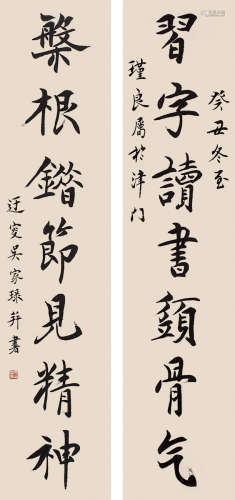 癸丑冬至
習字讀書頷骨气
瑾良屬於津门
槃根錯節見精神
迂叟吴家琭并書